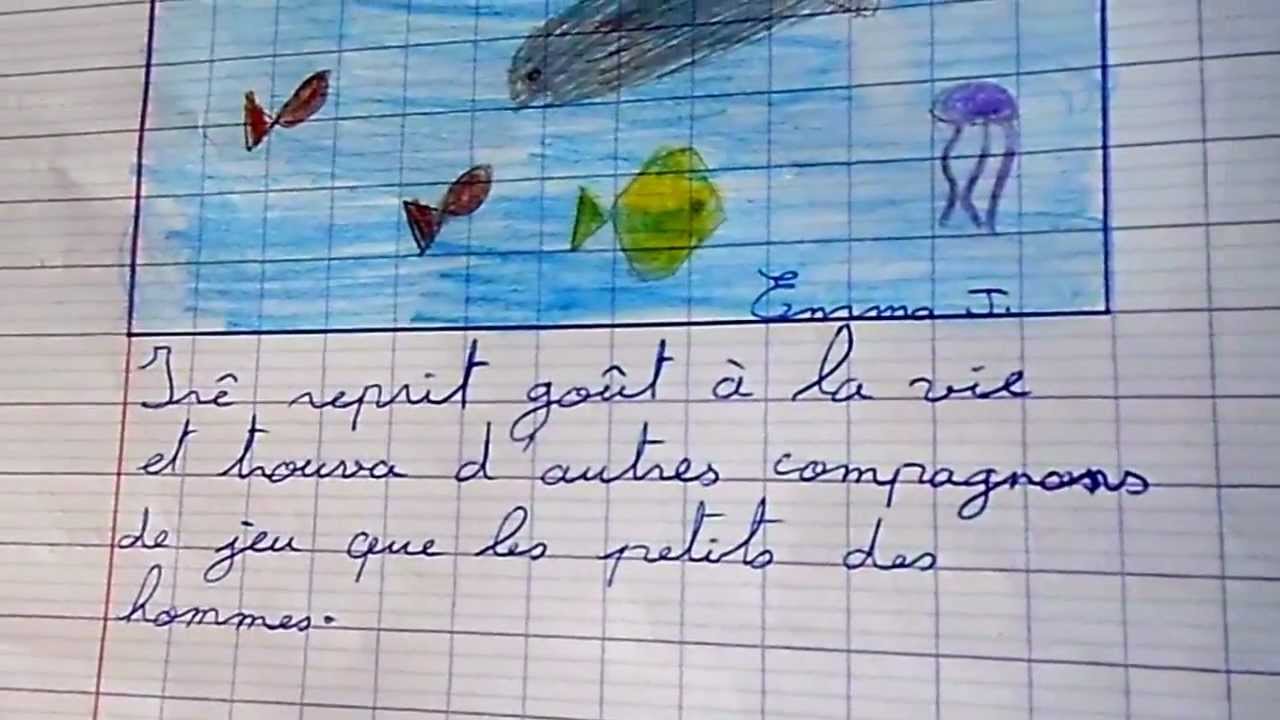 Emma J.
Irê reprit goût à la vie
et trouva d'autres compagnons
de jeu que les petits des
hommes.